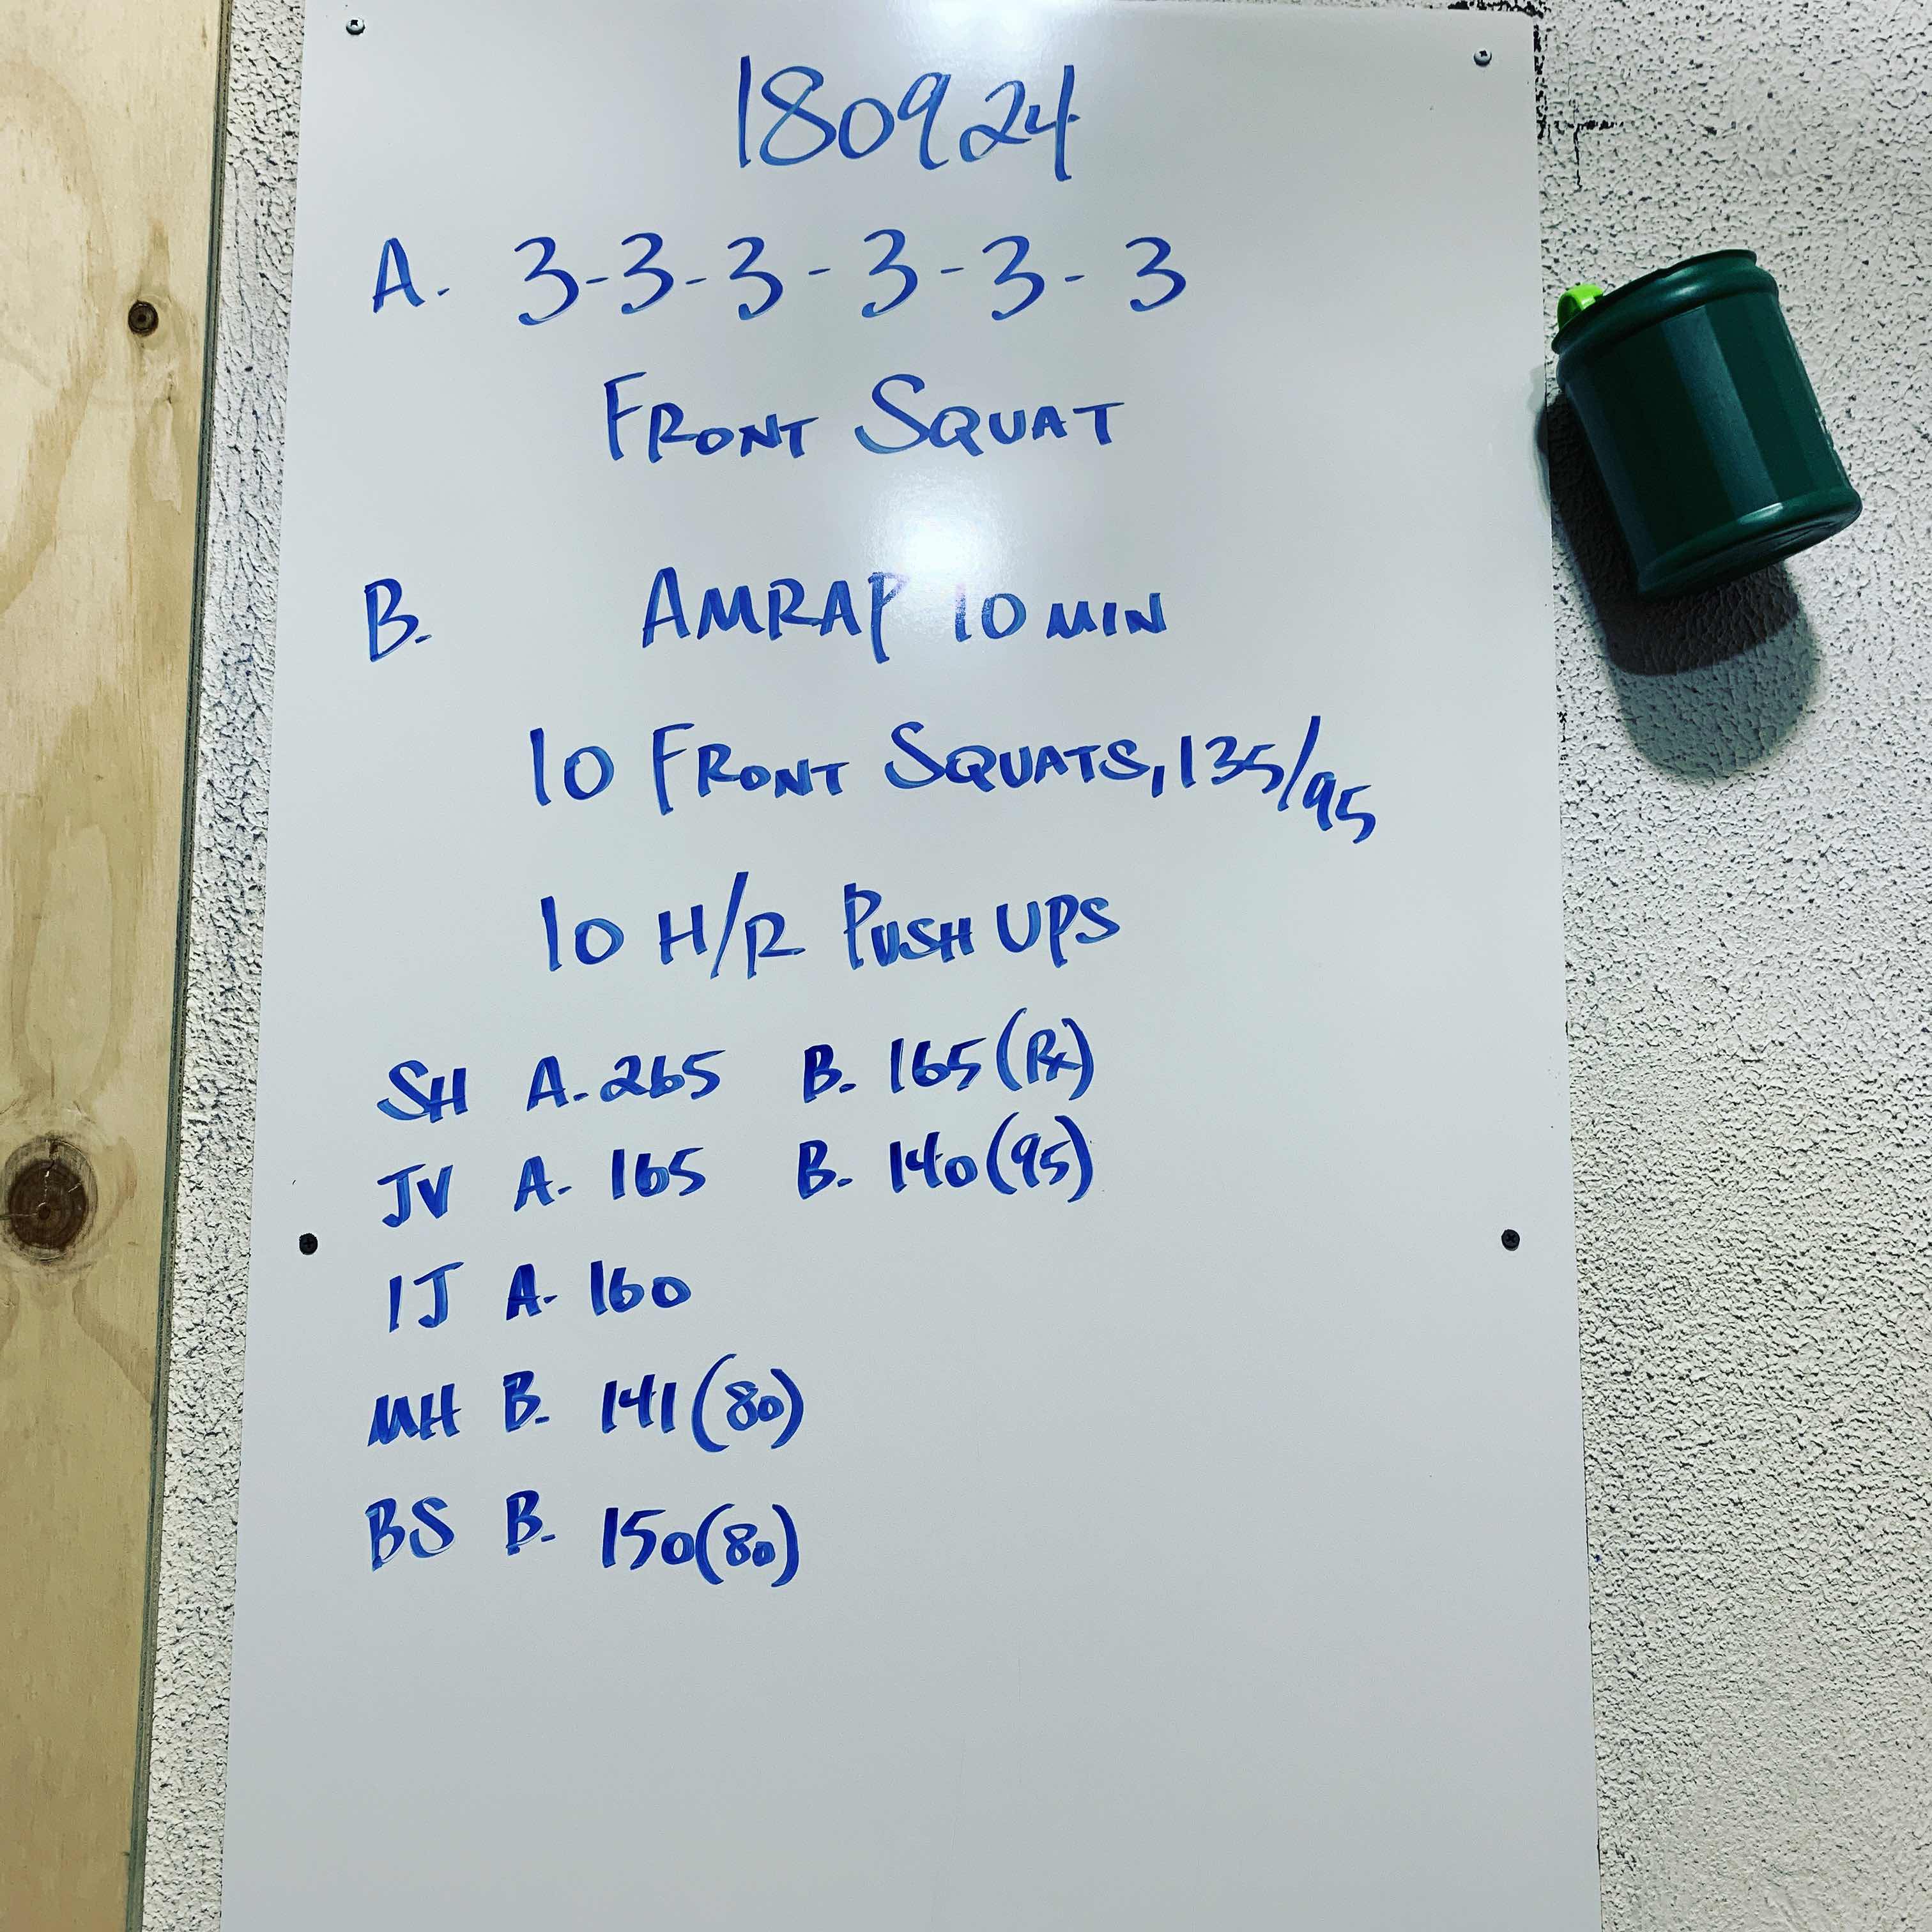 180924
A. 3-3-3-3-3-3
FRONT SQUAT
B. AMRAP 10 MIN
10 FRONT SQUATS, 135/95
10 H/R PUSH UPS
SH A. 265 B. 165 (Rx)
JV A. 165 B. 140 (95)
IJ A. 160
MH B. 141 (80)
BS B. 150 (80)